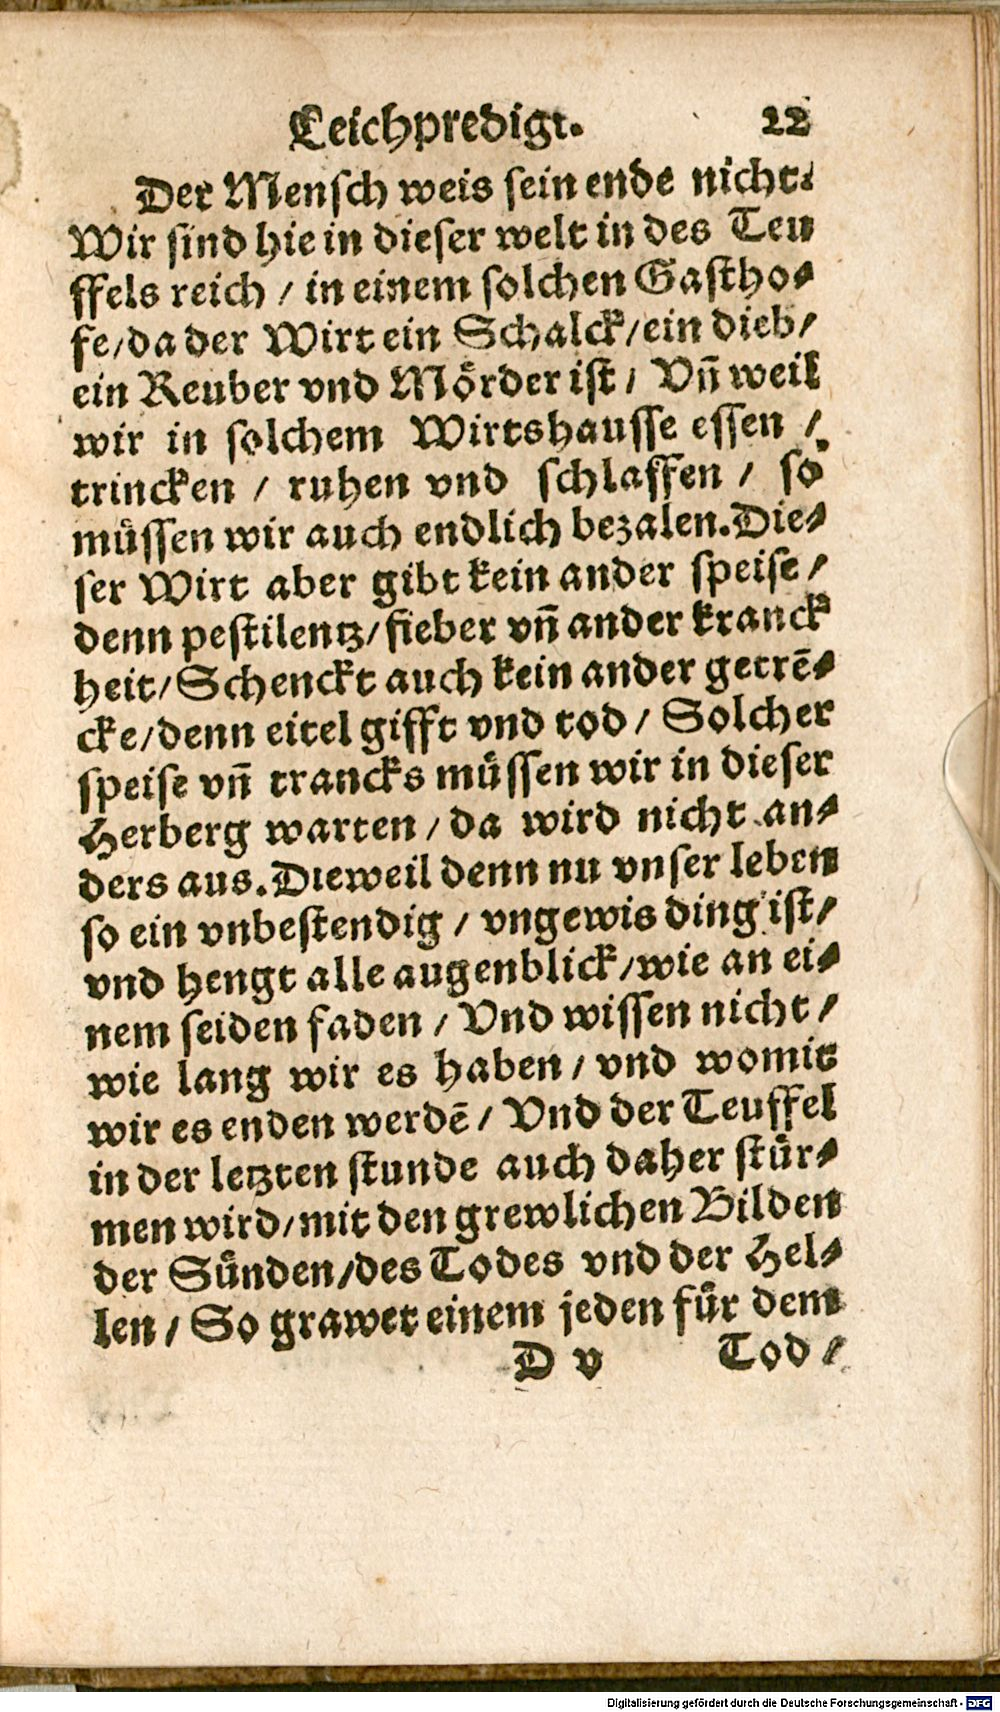 Leichpredigt. 22
Der Mensch weis sein ende nicht.
Wir sind hie in dieser welt in des Teu
ffels reich / in einem solchen Gastho⸗
fe / da der Wirt ein Schalck / ein dieb /
ein Reuber vnd Mörder ist / Vn̄ weil
wir in solchem Wirtshausse essen /
trincken / ruhen vnd schlaffen / so
müssen wir auch endlich bezalen. Die⸗
ser Wirt aber gibt kein ander speise /
denn pestilentz / fieber vn̄ ander kranck
heit / Schenckt auch kein ander getrē⸗
cke / denn eitel gifft vnd tod / Solcher
speise vn̄ trancks müssen wir in dieser
Herberg warten / da wird nicht an⸗
ders aus. Dieweil denn nu vnser leben
so ein vnbestendig / vngewis ding ist /
vnd hengt alle augenblick / wie an ei⸗
nem seiden faden / Vnd wissen nicht /
wie lang wir es haben / vnd womit
wir es enden werdē / Vnd der Teuffel
in der letzten stunde auch daher stür⸗
men wird / mit den grewlichen Bilden
der Sünden / des Todes vnd der Hel⸗
len / So grawet einem jeden für dem
D v Tod /
Digitalisierung gefördert durch die Deutsche Forschungsgemeinschaft - DFG